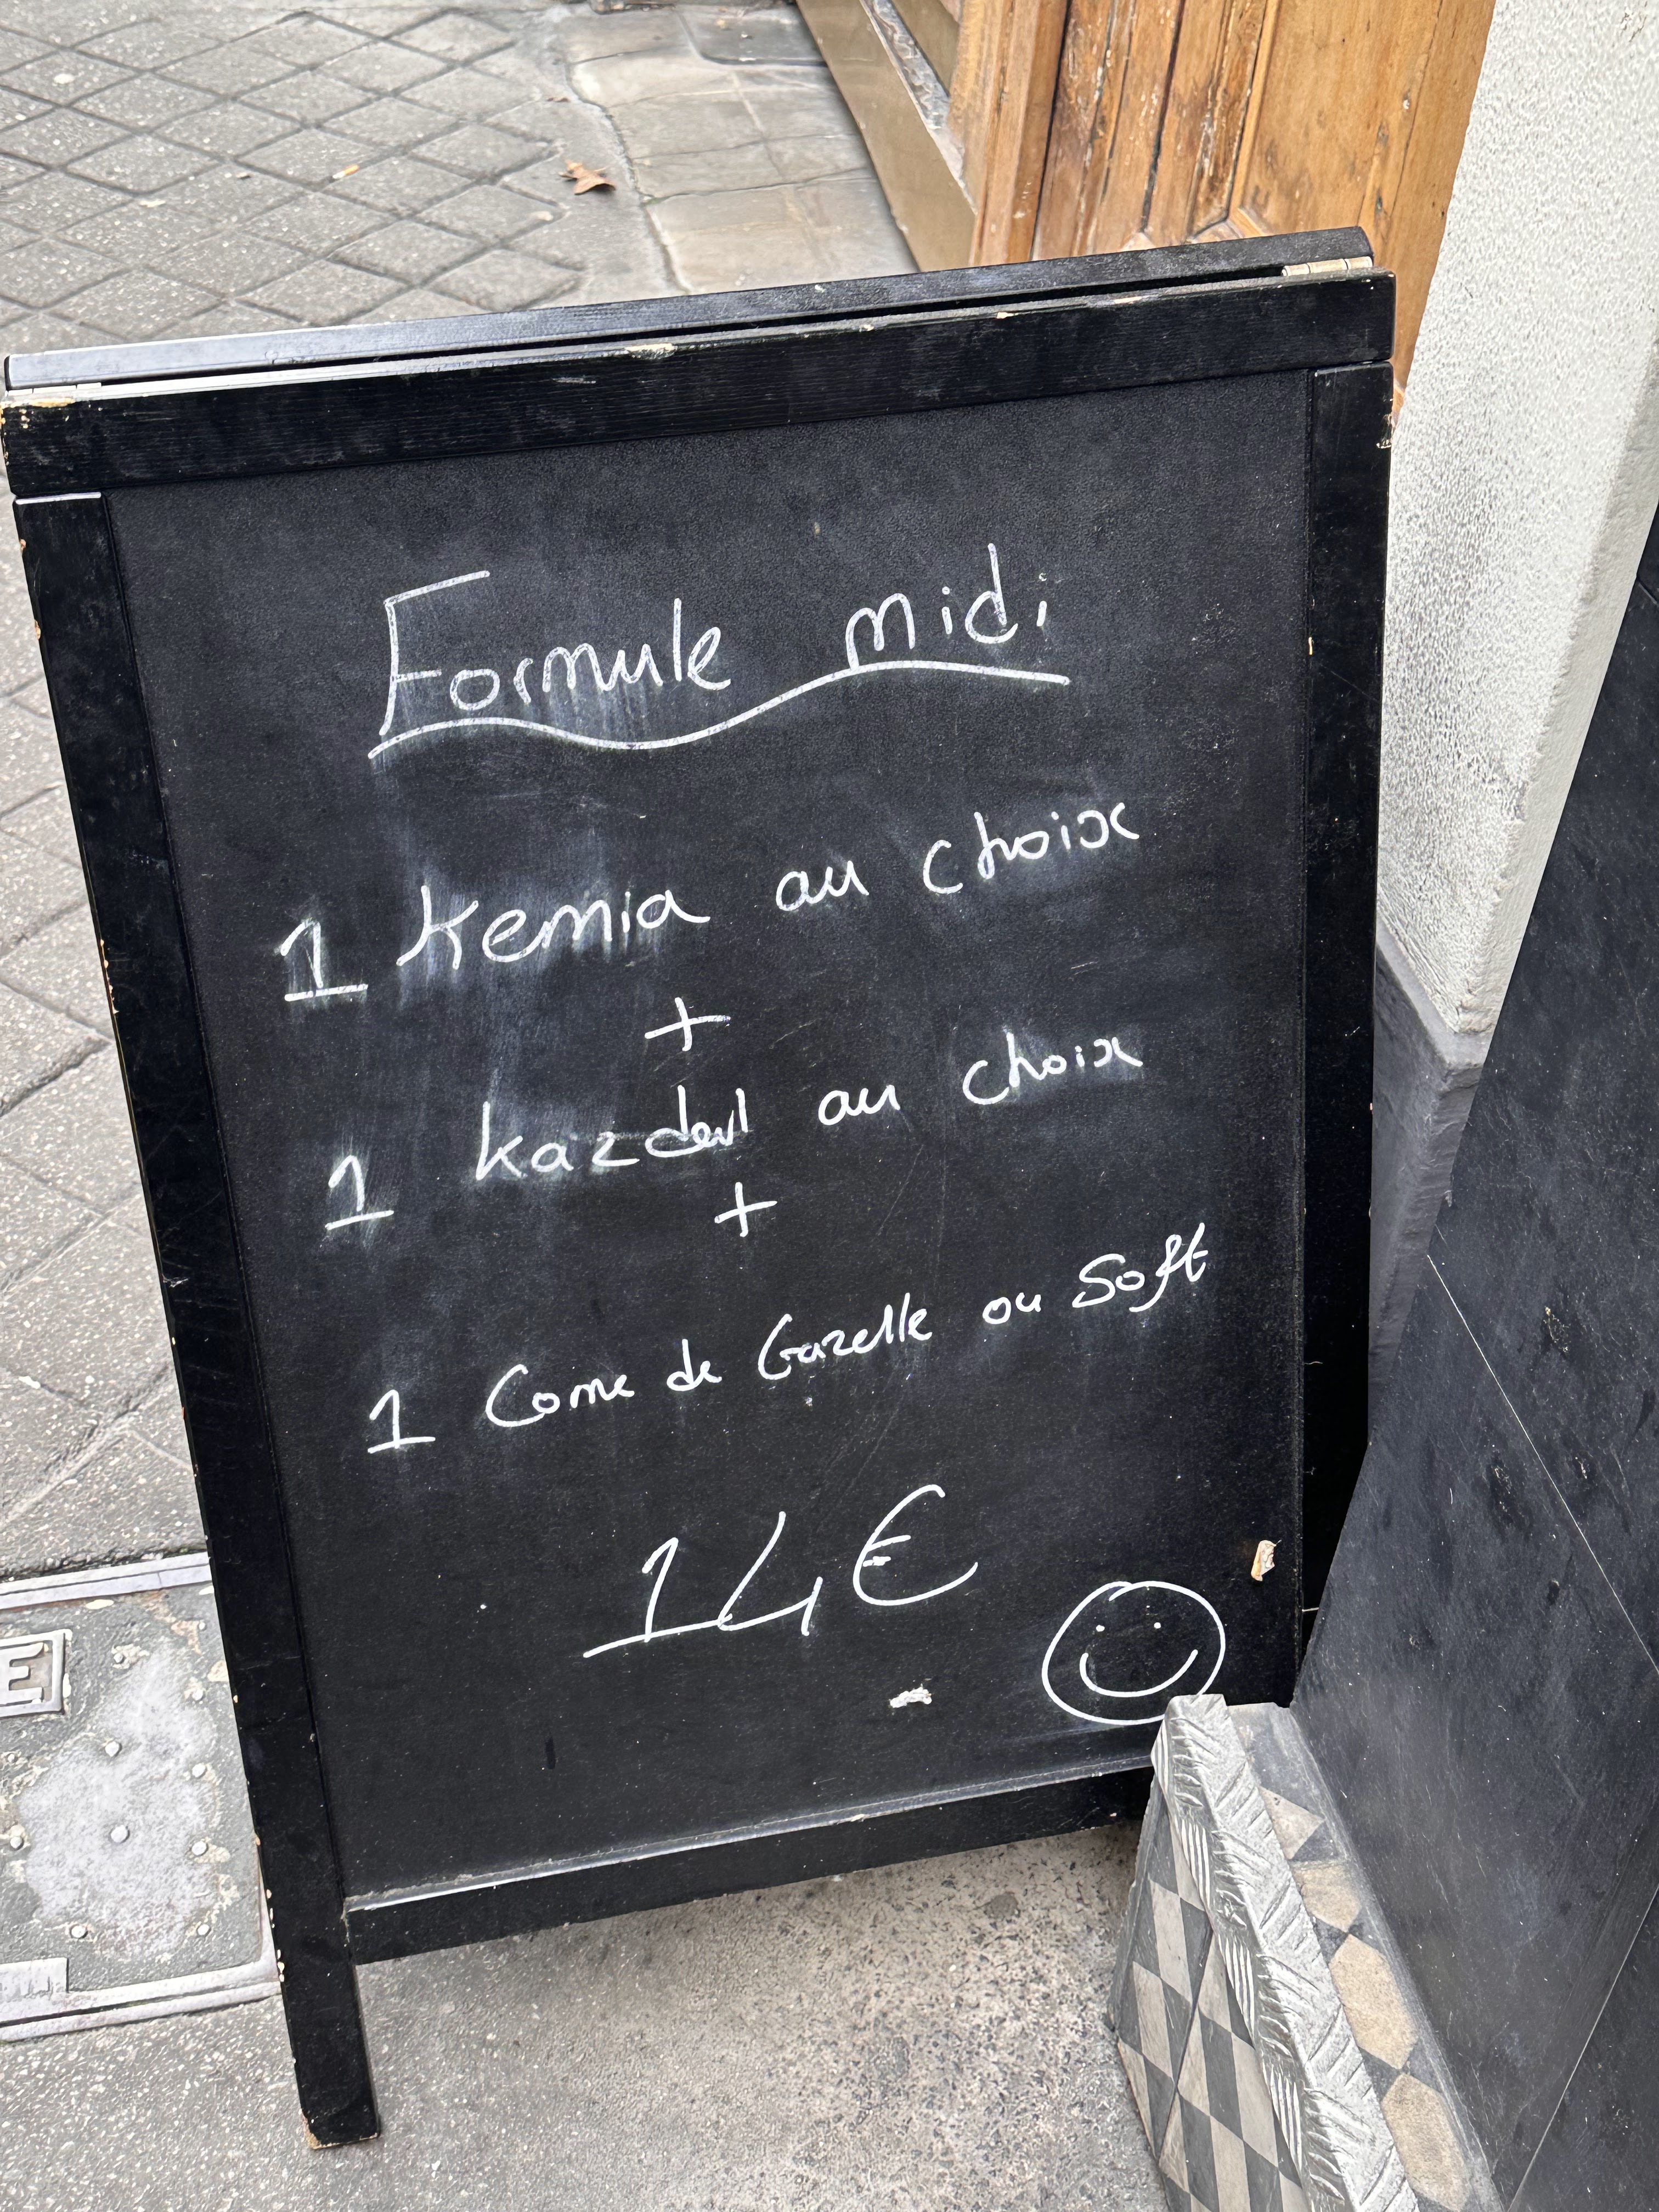 Formule midi
1 Kemia au choix
+
1 au choix
+
1 Corne de Gazelle ou Soft
14€
E